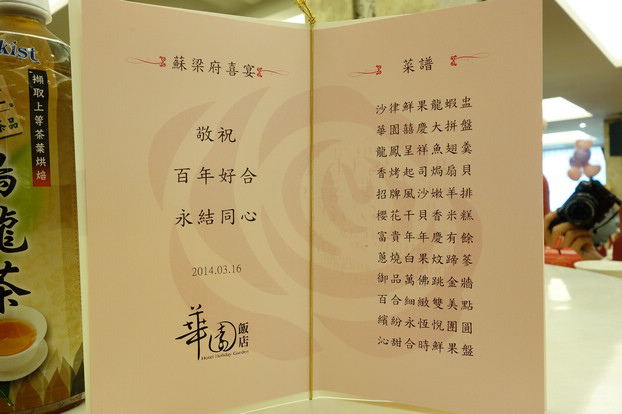 kist
擷取上等茶葉烘焙
烏龍茶
蘇梁府喜宴
敬祝
百年好合
永結同心
2014.03.16
華園飯店
Hotel Holiday Garden
菜譜
沙律鮮果龍蝦盅
華園囍慶大拼盤
龍鳳呈祥魚翅羹
香烤起司焗扇貝
招牌風沙嫩羊排
櫻花干貝香米糕
富貴年年慶有餘
蔥燒白果炆蹄茶
御品萬佛跳金牆
百合細緻雙美點
繽紛永恆悅團圓
沁甜合時鮮果盤